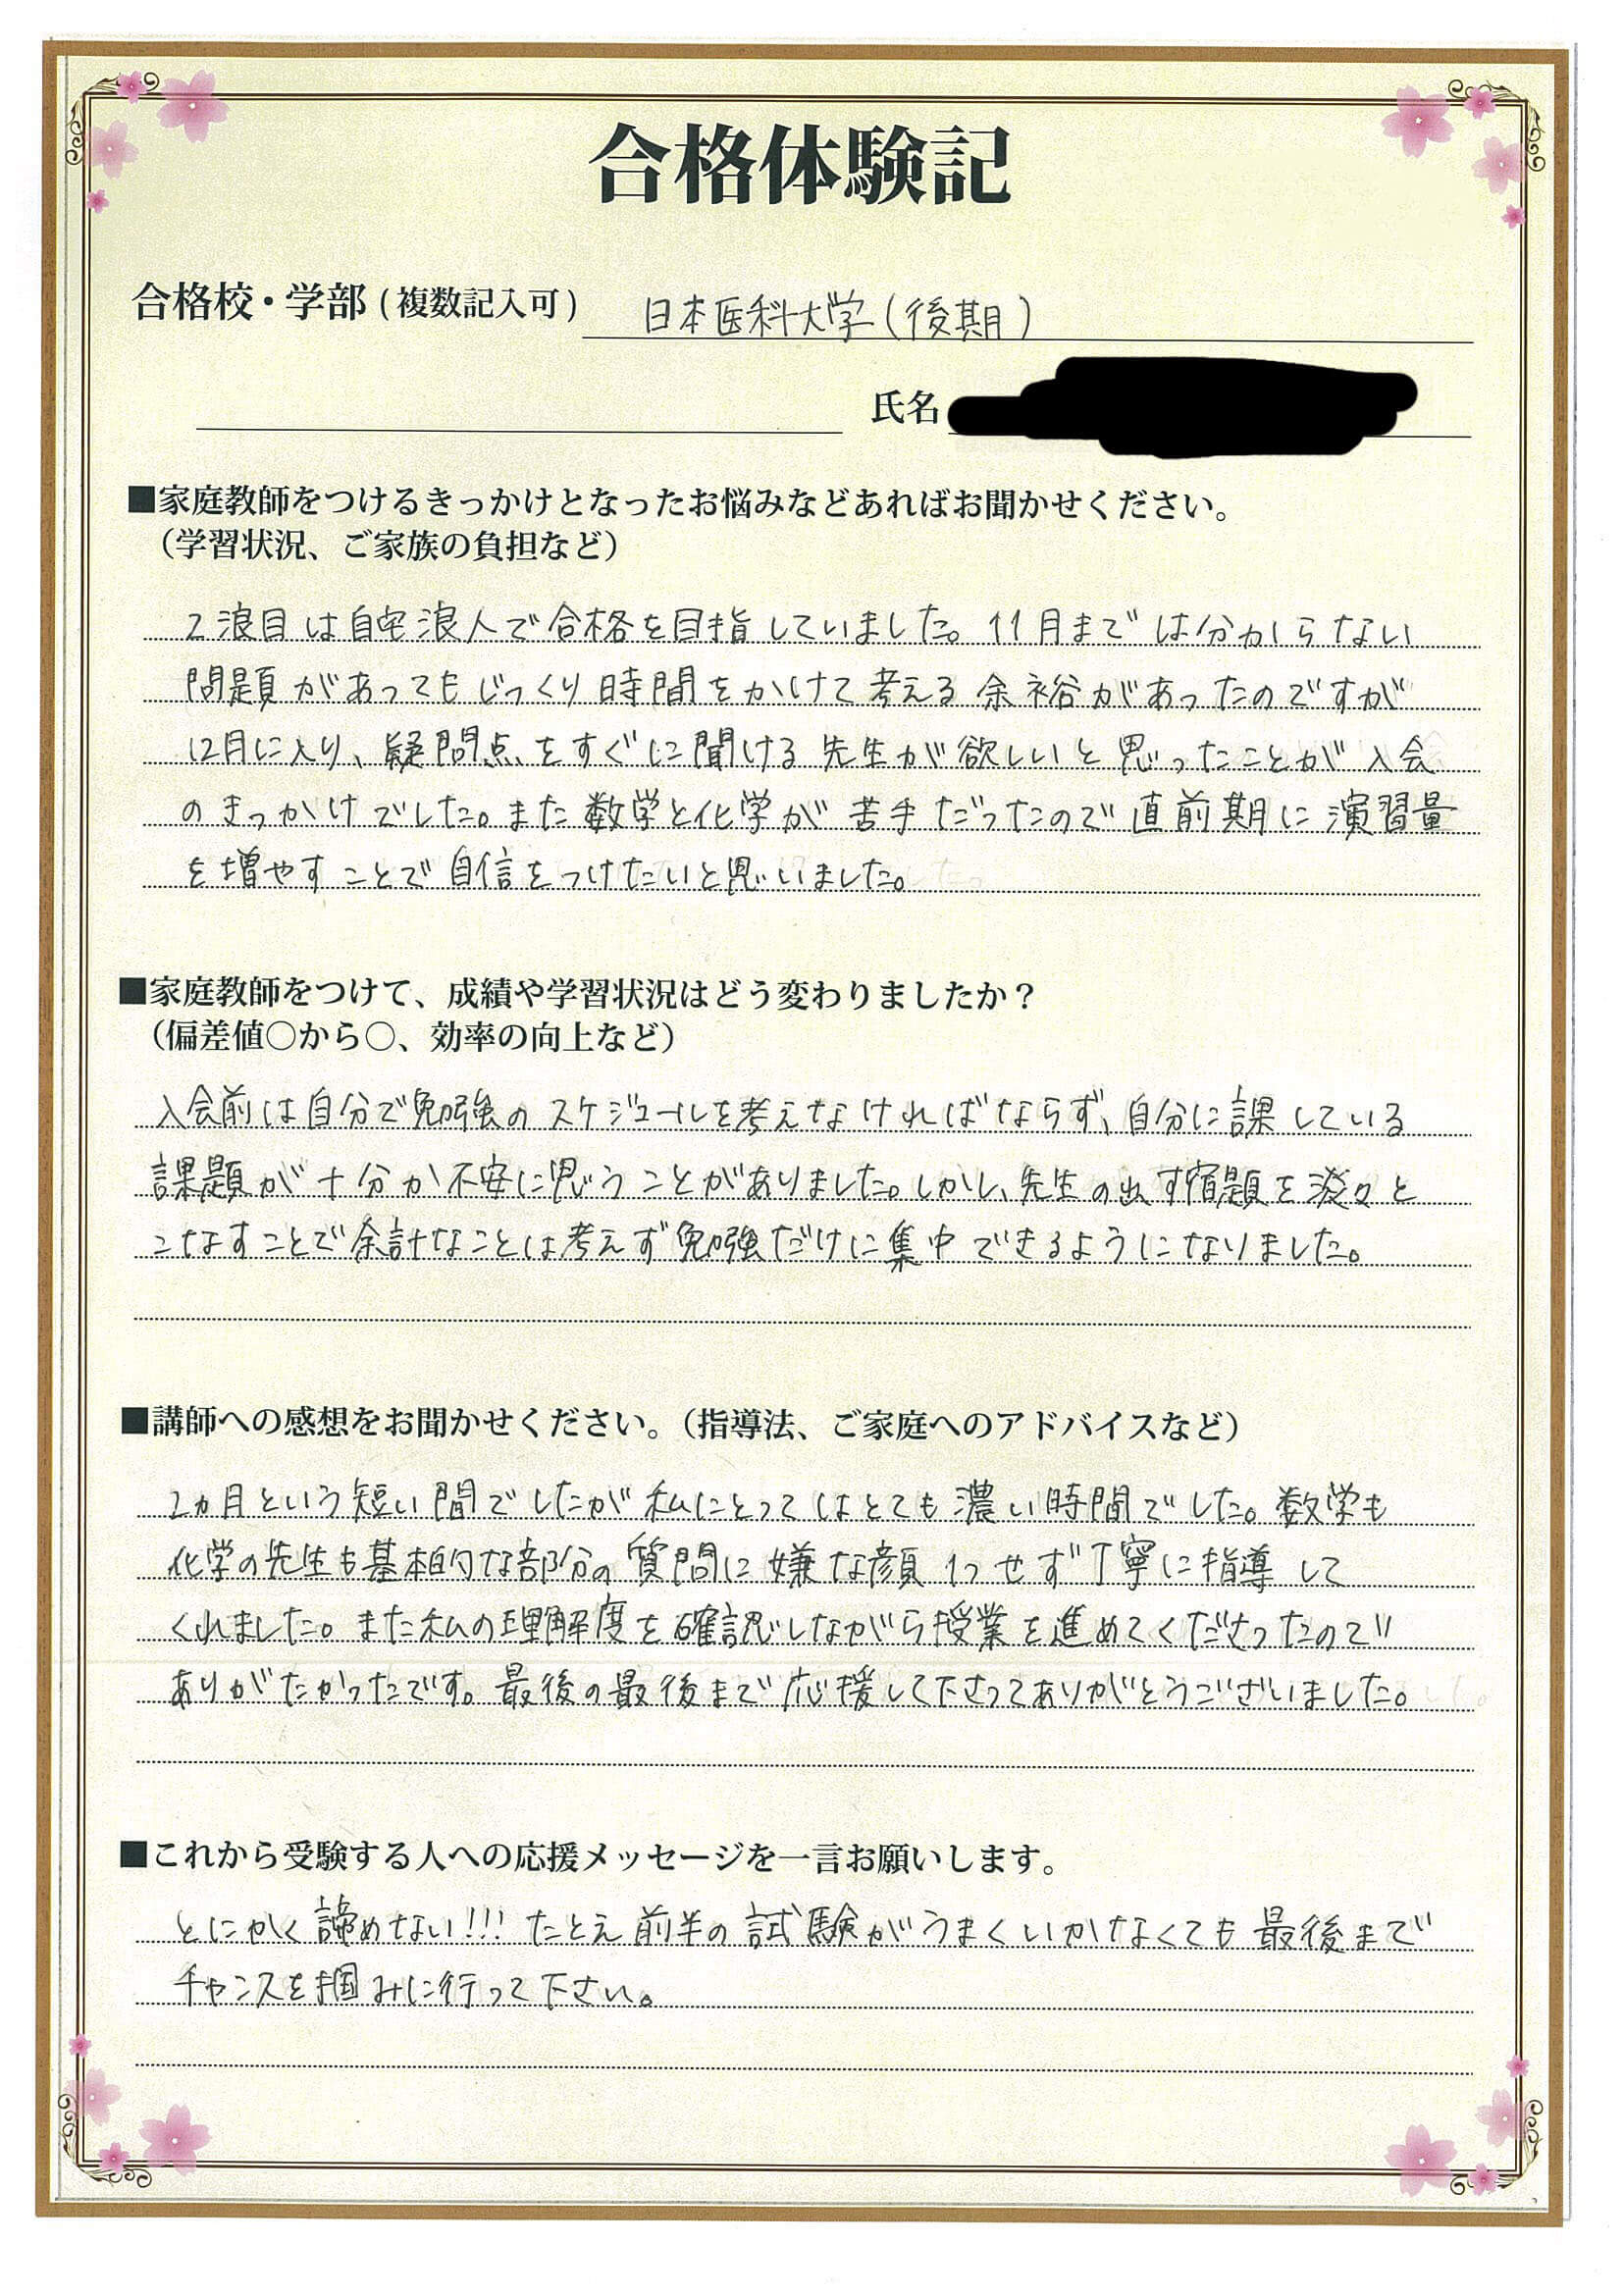 合格体験記
合格校・学部(複数記入可) 日本医科大学(後期)
氏名
■家庭教師をつけるきっかけとなったお悩みなどあればお聞かせください。
(学習状況、ご家族の負担など)
2浪目は自宅浪人で合格を目指していました。11月までは分からない
問題があってもじっくり時間をかけて考える余裕があったのですが
12月に入り、疑問点をすぐに聞ける先生が欲しいと思ったことが入会
のきっかけでした。また数学と化学が苦手だったので直前期に演習量
を増やすことで自信をつけたいと思いました。
■家庭教師をつけて、成績や学習状況はどう変わりましたか?
(偏差値○から○、効率の向上など)
入会前は自分で勉強のスケジュールを考えなければならず、自分に課している
課題が十分か不安に思うことがありました。しかし、先生の出す宿題を淡々と
こなすことで余計なことは考えず勉強だけに集中できるようになりました。
■講師への感想をお聞かせください。(指導法、ご家庭へのアドバイスなど)
2ヵ月という短い間でしたが私にとってはとても濃い時間でした。数学も
化学の先生も基本的な部分の質問に嫌な顔1つせず丁寧に指導して
くれました。また私の理解度を確認しながら授業を進めてくださったので
ありがたかったです。最後の最後まで応援して下さってありがとうございました。
■これから受験する人への応援メッセージを一言お願いします。
とにかく諦めない!!! たとえ前半の試験がうまくいかなくても最後まで
チャンスを掴みに行って下さい。